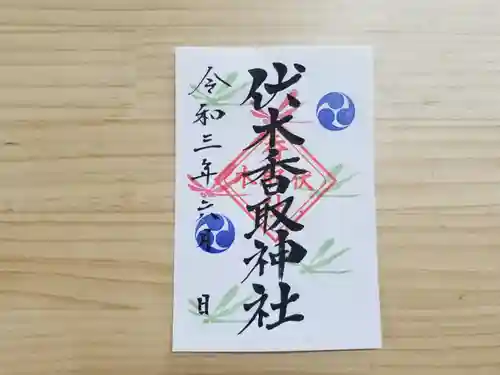 伏木香取神社
令和三年六月 日